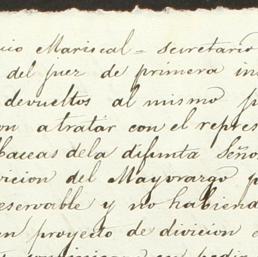 cio Mariscal = secretario
del juez de primera in
devueltos al mismo p
on a tratar con el repres
baceas dela difunta Seño
vicion del Mayorazgo p
eservable y no habiend
en proyecto de divicion